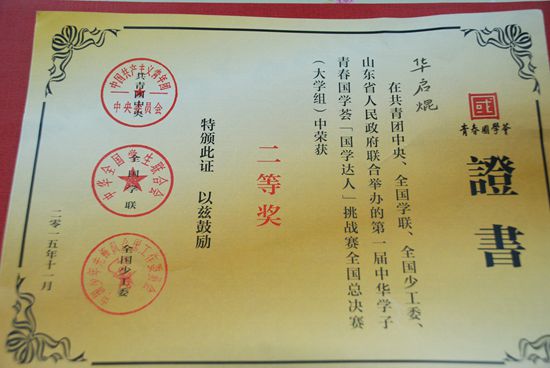 青春國學荟
證書
华启焜
在共青团中央、全国学联、全国少工委、
山东省人民政府联合举办的第一届中华学子
青春国学荟「国学达人」挑战赛全国总决赛
（大学组）中荣获
二等奖
特颁此证 以兹鼓励
共青团中央
中国共产主义青年团
中央委员会
全国学联
中华全国学生联合会
全国少工委
二〇一五年十一月